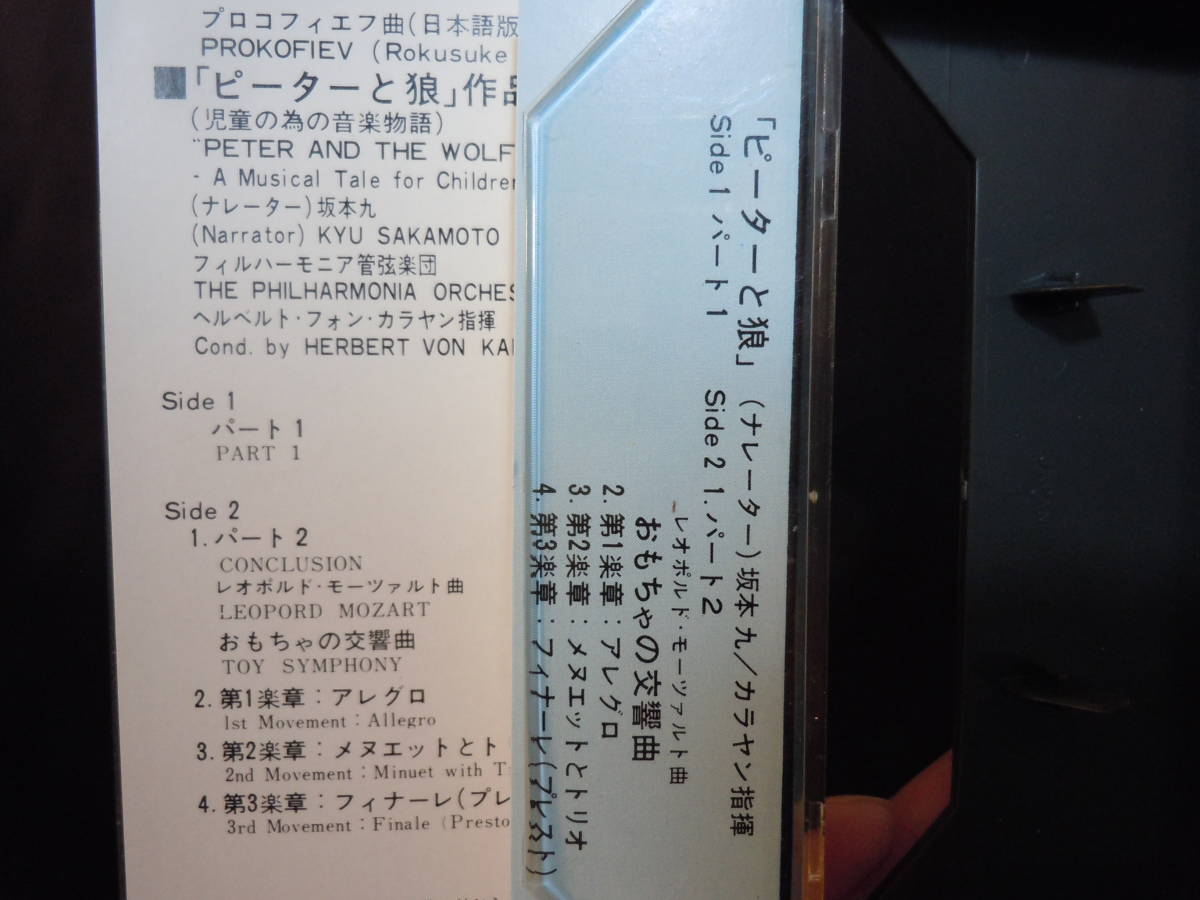 プロコフィエフ曲(日本語版
PROKOFIEV (Rokusuke
■「ピーターと狼」作品
(児童の為の音楽物語)
"PETER AND THE WOLF
- A Musical Tale for Children
(ナレーター)坂本九
(Narrator) KYU SAKAMOTO
フィルハーモニア管弦楽団
THE PHILHARMONIA ORCHES
ヘルベルト・フォン・カラヤン指揮
Cond. by HERBERT VON KA
Side 1
パート1
PART 1
Side 2
1. パート2
CONCLUSION
レオポルド・モーツァルト曲
LEOPORD MOZART
おもちゃの交響曲
TOY SYMPHONY
2. 第1楽章：アレグロ
1st Movement : Allegro
3. 第2楽章：メヌエットとト
2nd Movement : Minuet with T
4. 第3楽章：フィナーレ(プレ
3rd Movement : Finale (Presto
「ピーターと狼」(ナレーター)坂本九／カラヤン指揮
Side 1 パート1 Side 2 1. パート2
レオポルド・モーツァルト曲
おもちゃの交響曲
2. 第1楽章：アレグロ
3. 第2楽章：メヌエットとトリオ
4. 第3楽章：フィナーレ(プレスト)